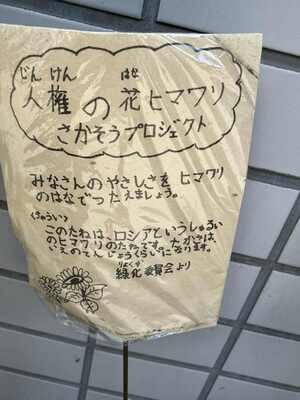 じんけん はな
人権の花ヒマワリ
さかそうプロジェクト
みなさんのやさしさを ヒマワリ
のはなでつたえましょう。
(ちゅうい)
このたねは、ロシアというしゅるい
のヒマワリのたねです。たかさは、
いえのてんじょうくらいになります。
りょくか
緑化委員会より